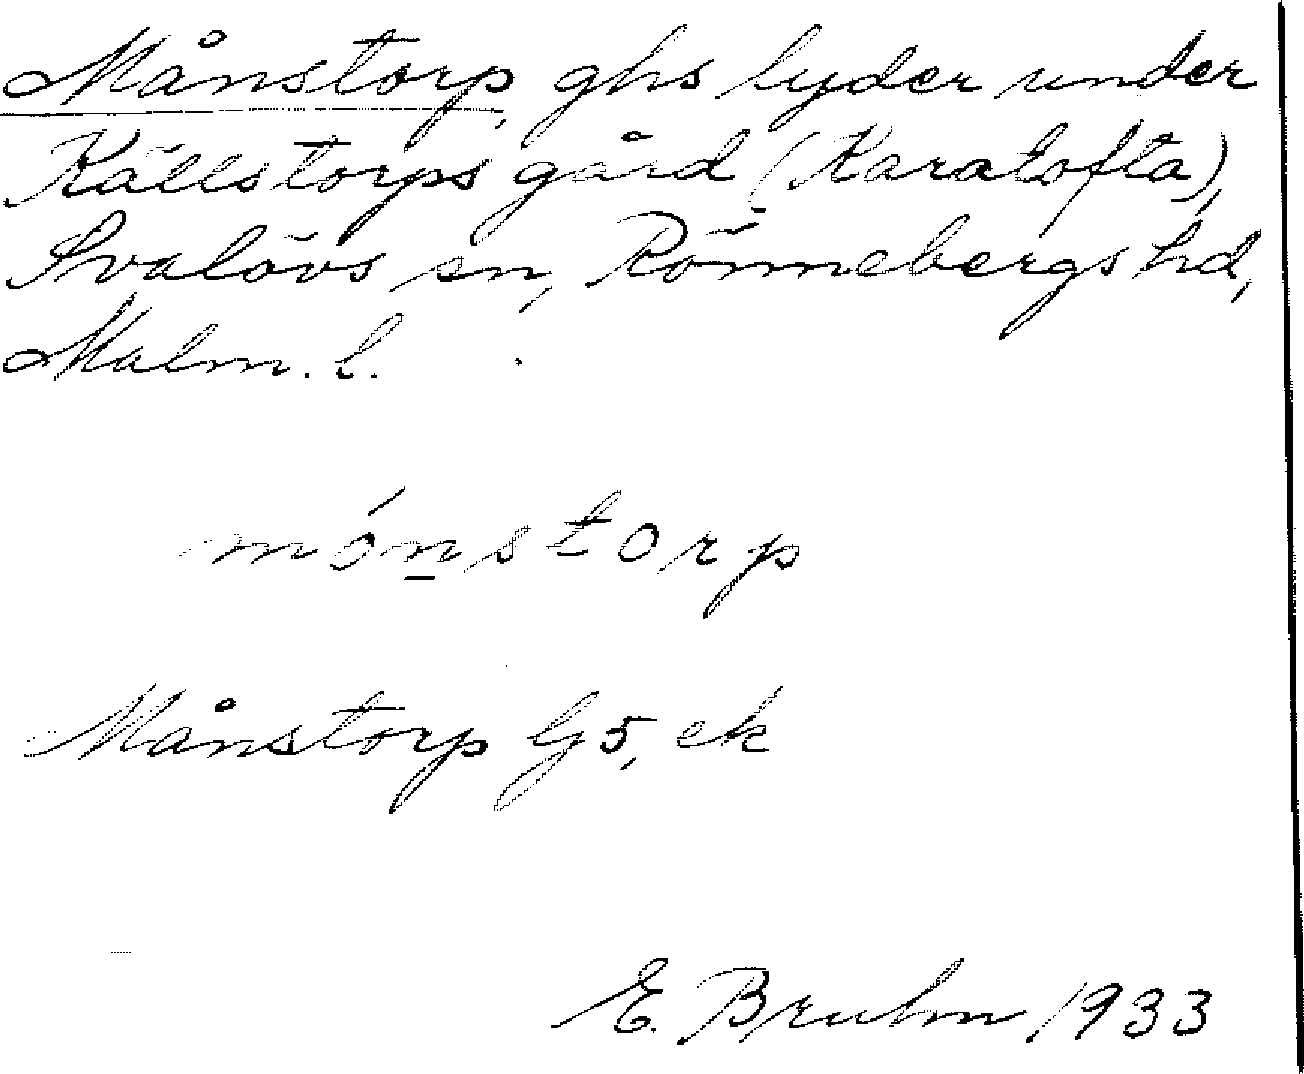 Månstorp, ghs lyder under
Källstorps gård (Karatofta),
Svalövs sn, Rönnebergs hd,
Malm. l.
mónstorp
Månstorp G5, ek
E. Bruhn 1933